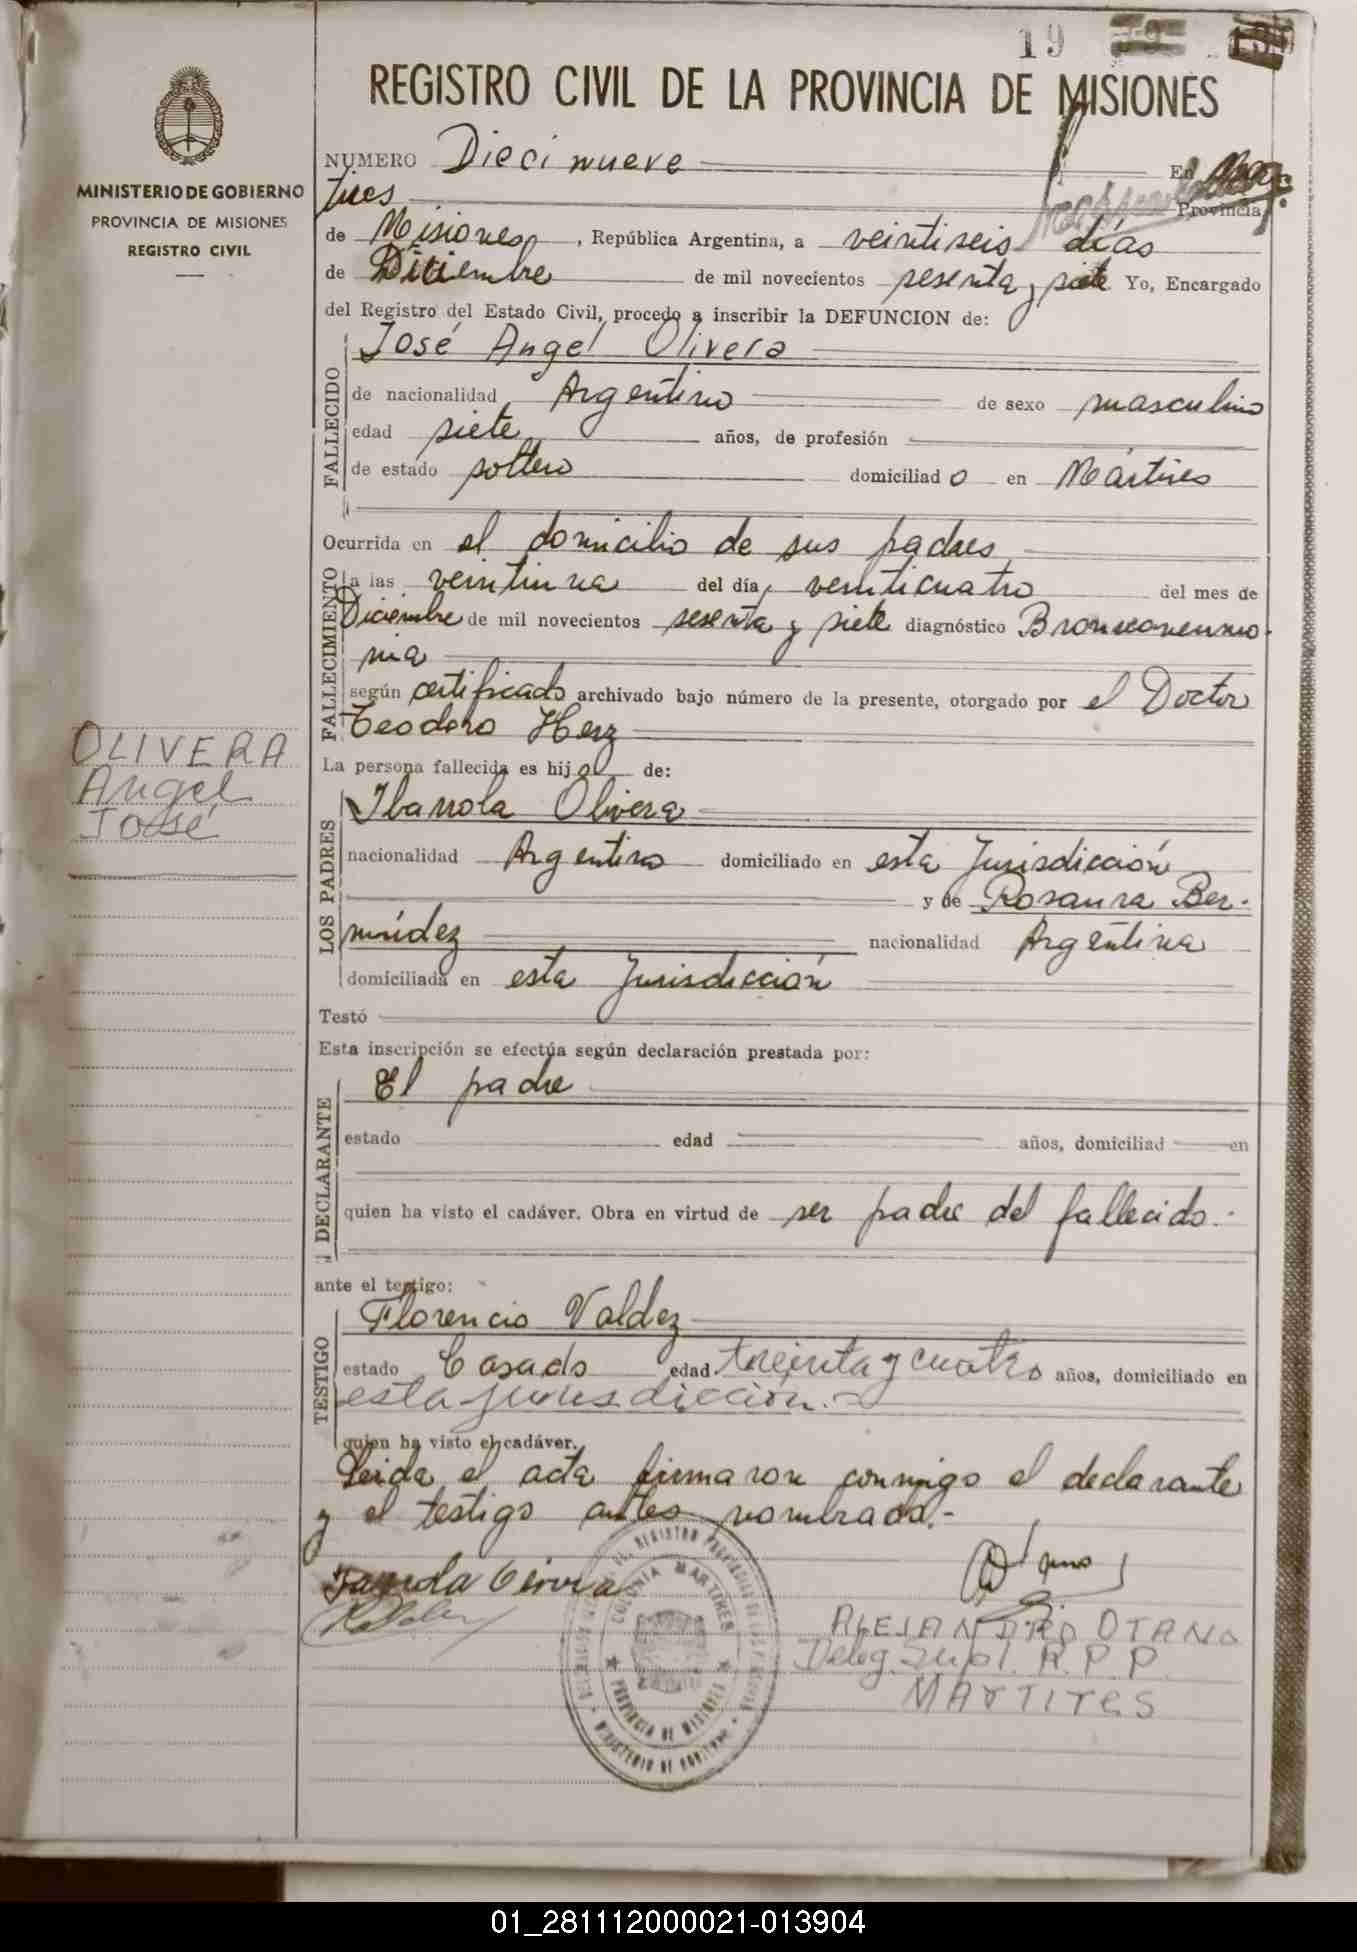 19
REGISTRO CIVIL DE LA PROVINCIA DE MISIONES
MINISTERIO DE GOBIERNO
PROVINCIA DE MISIONES
REGISTRO CIVIL
NUMERO Diecinueve En Már-
tires Provincia
de Misiones, República Argentina, a veintiseis días
de Diciembre de mil novecientos sesenta y siete Yo, Encargado
del Registro del Estado Civil, procedo a inscribir la DEFUNCION de:
FALLECIDO
José Angel Olivera
de nacionalidad Argentino de sexo masculino
edad siete años, de profesión
de estado soltero domiciliado en Mártires
Ocurrida en el domicilio de sus padres
FALLECIMIENTO
a las veintiuna del día, veinticuatro del mes de
Diciembre de mil novecientos sesenta y siete diagnóstico Bronconeumo-
nia
según certificado archivado bajo número de la presente, otorgado por el Doctor
Teodoro Herz
OLIVERA
Angel
José
La persona fallecida es hijo de:
LOS PADRES
Ibarrola Olivera
nacionalidad Argentino domiciliado en esta Jurisdicción
y de Rosaura Ber-
múdez nacionalidad Argentina
domiciliada en esta Jurisdicción
Testó
Esta inscripción se efectúa según declaración prestada por:
DECLARANTE
El padre
estado edad años, domiciliad en
quien ha visto el cadáver. Obra en virtud de ser padre del fallecido.-
ante el testigo:
TESTIGO
Florencio Valdez
estado Casado edad treinta y cuatro años, domiciliado en
esta jurisdicción.-
quien ha visto el cadáver.
Leida el acta firmaron conmigo el declarante
y el testigo antes nombrado.-
COLONIA MARTIRES
PROVINCIA DE MISIONES
MINISTERIO DE GOBIERNO
ALEJANDRO OTANO
Deleg. Supl. R. P. P.
MARTIRES
01_281112000021-013904